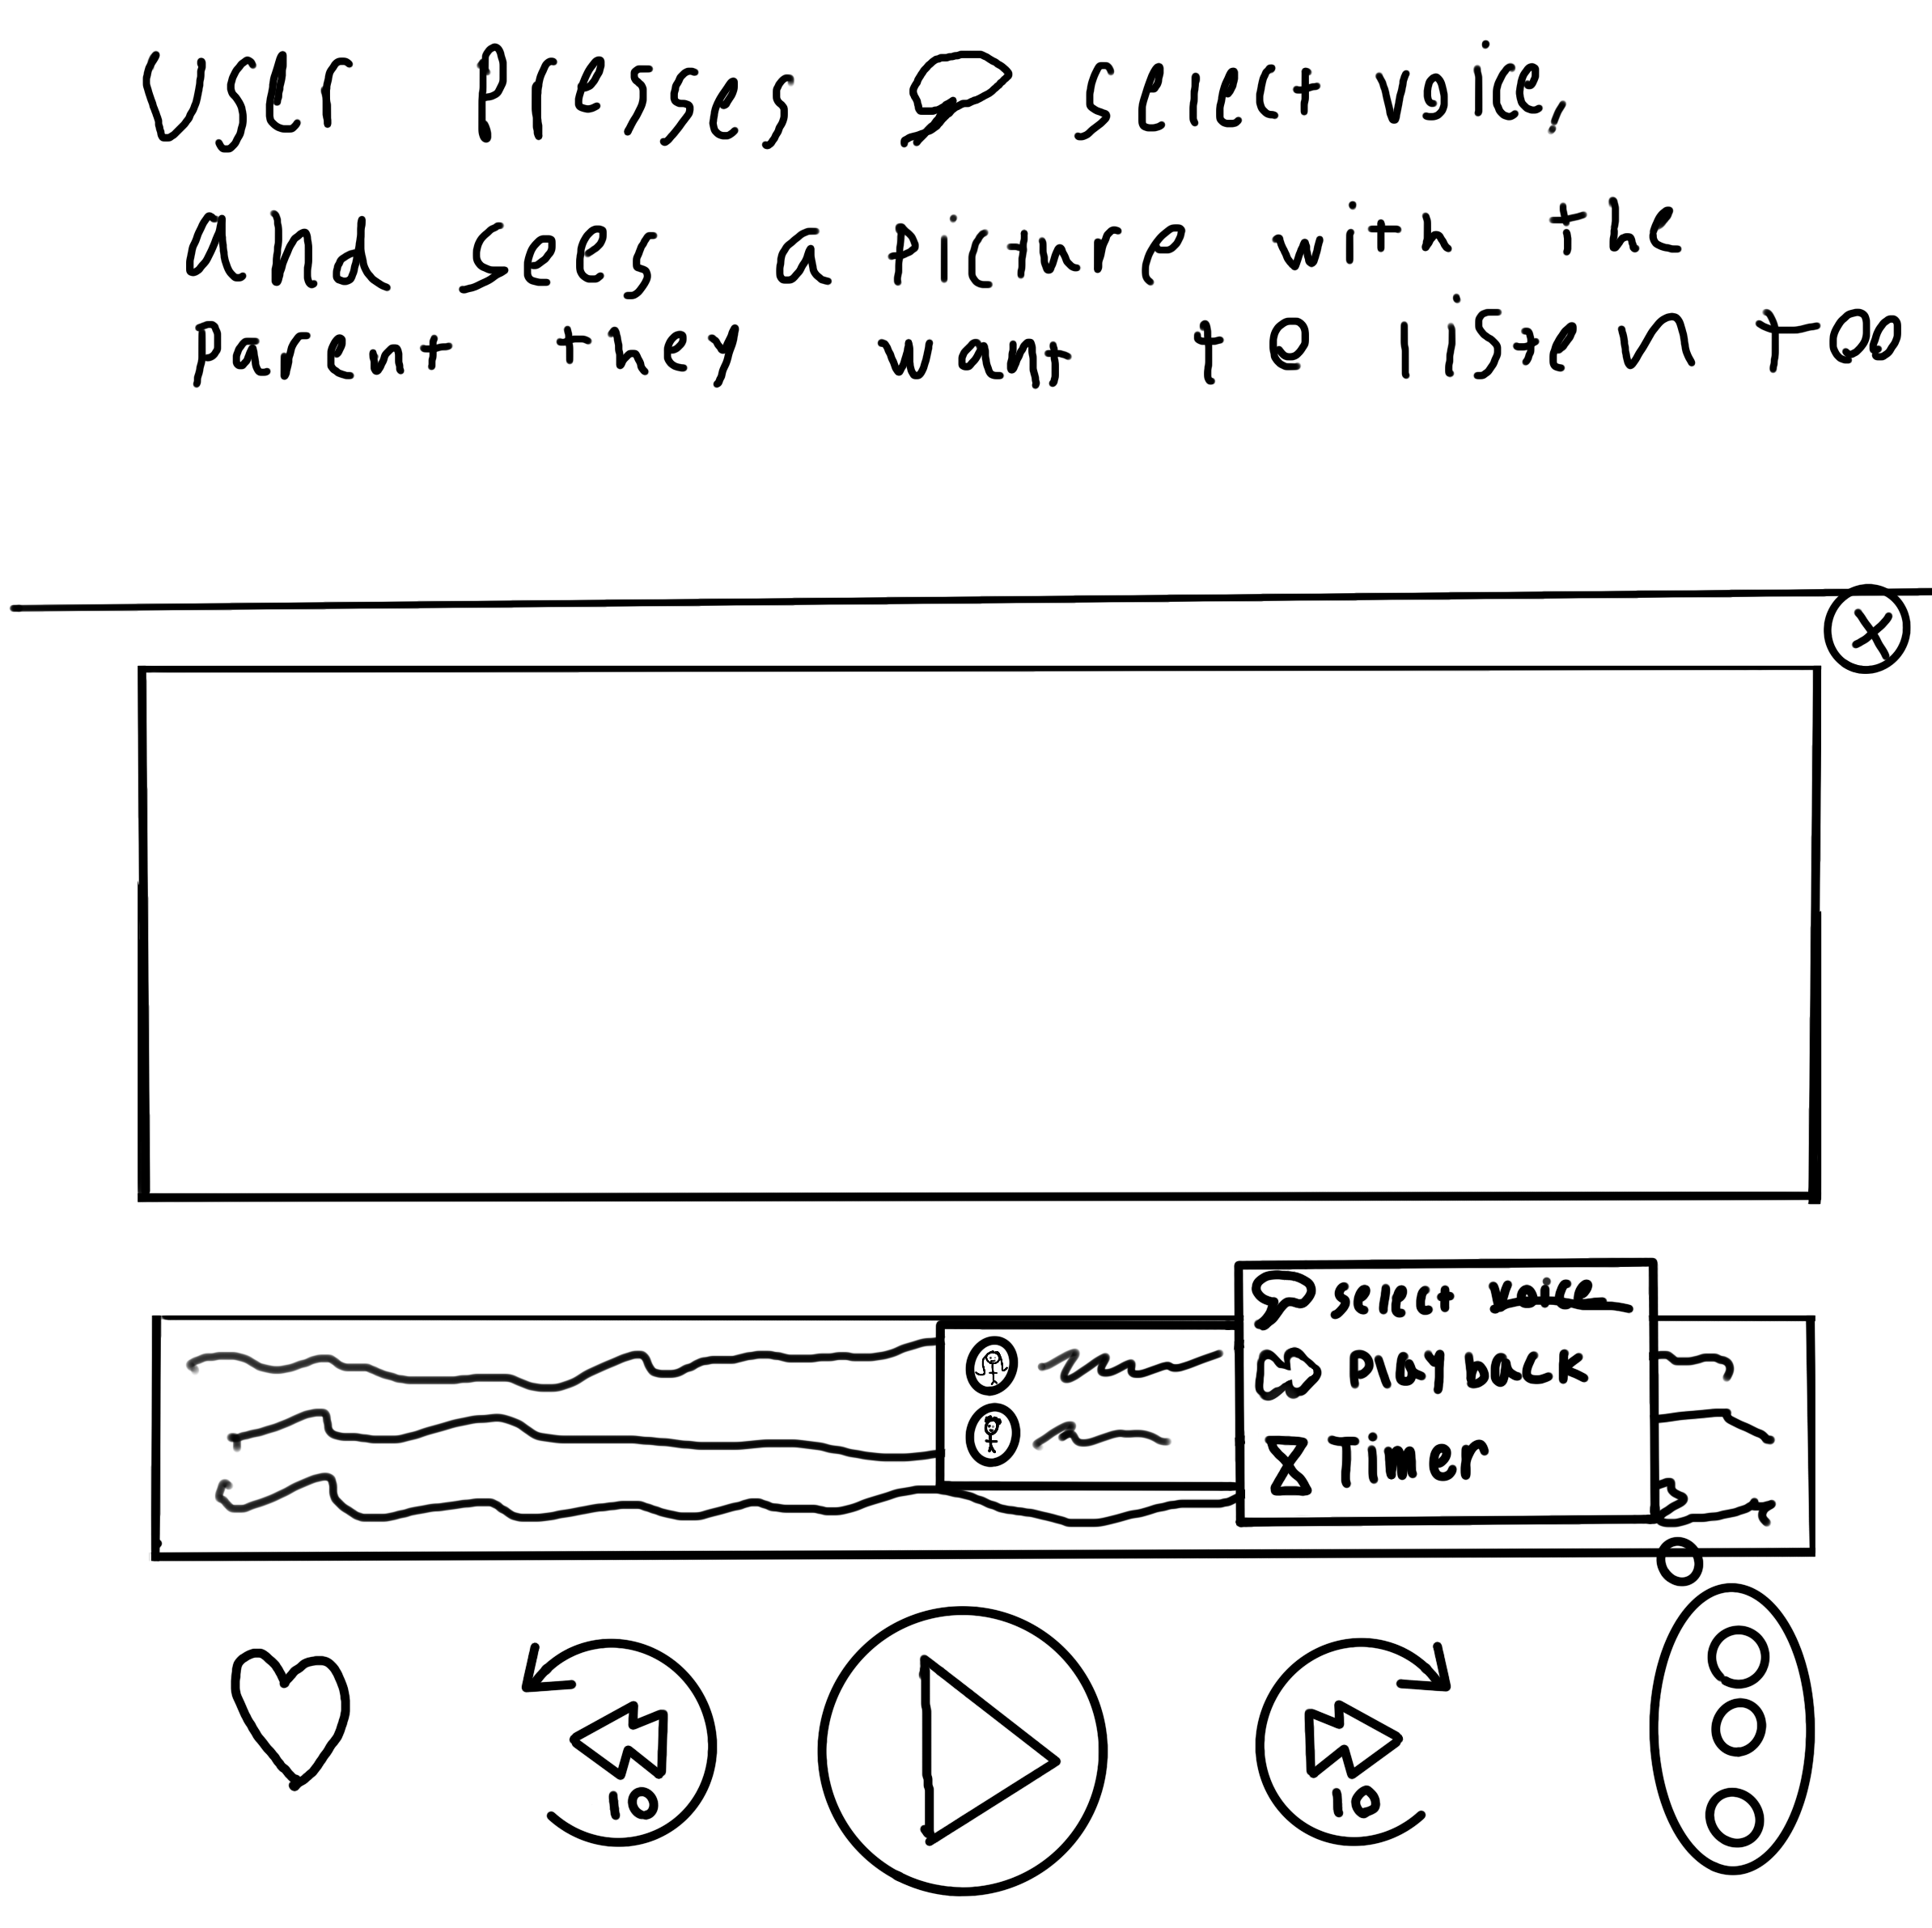 User Presses select voice,
and sees a picture with the
Parent they want to listen to
select voice
Play back
Timer
10
10